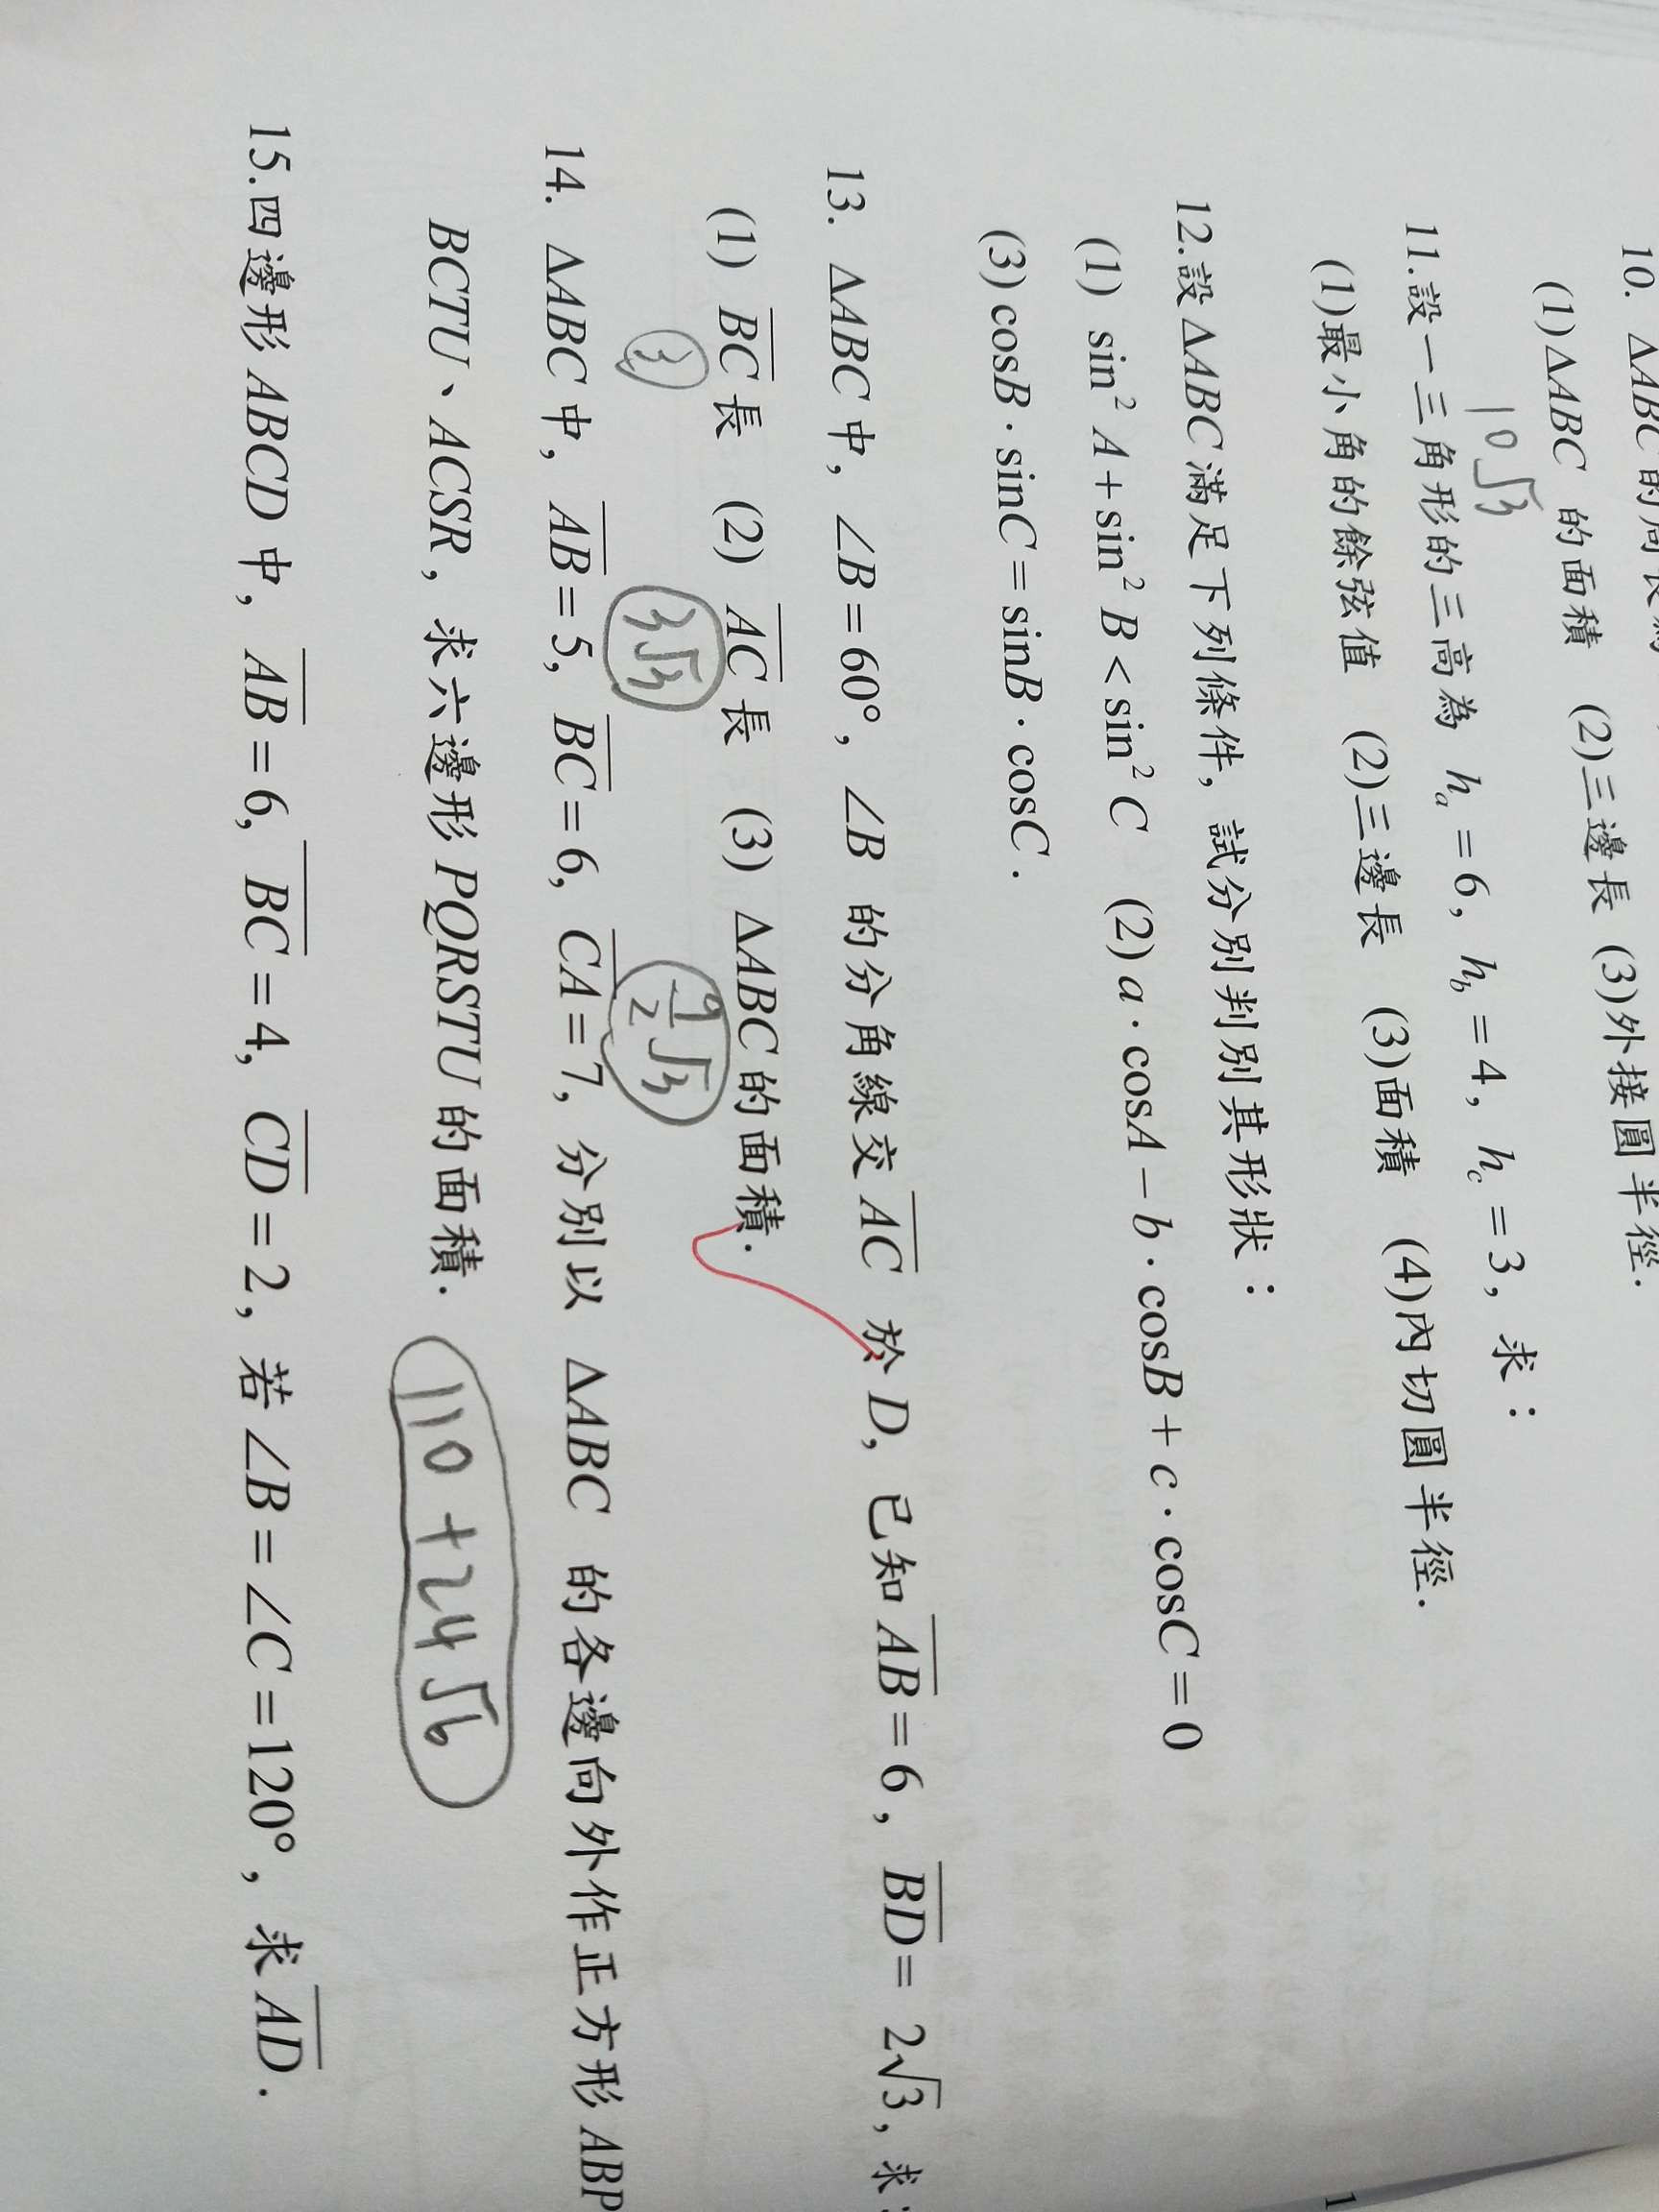 10. ΔABC的周長為
(1)ΔABC 的面積 (2)三邊長 (3)外接圓半徑.
10√3
11.設一三角形的三高為 hₐ=6, h_b=4, h_c=3, 求：
(1)最小角的餘弦值 (2)三邊長 (3)面積 (4)內切圓半徑.
12.設ΔABC滿足下列條件, 試分別判別其形狀：
(1) sin²A+sin²B<sin²C (2)a·cosA−b·cosB+c·cosC=0
(3)cosB·sinC=sinB·cosC.
13. ΔABC中, ∠B=60°, ∠B 的分角線交AC 於D, 已知AB=6, BD= 2√3, 求：
(1) BC長 (2) AC長 (3) ΔABC的面積.
3 3√3 9/2√3
14. ΔABC中, AB=5, BC=6, CA=7, 分別以 ΔABC 的各邊向外作正方形ABP
BCTU、ACSR, 求六邊形PQRSTU的面積. 110+24√6
15.四邊形ABCD中, AB=6, BC=4, CD=2, 若∠B=∠C=120°, 求AD.
1